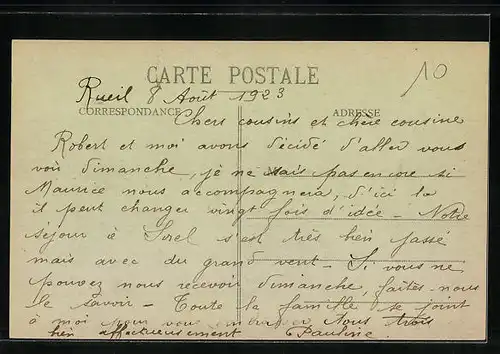 CARTE POSTALE
10
Rueil 8 Août 1923
CORRESPONDANCE ADRESSE
Chers cousins et chère cousine
Robert et moi avons décidé d'aller vous
voir dimanche, je ne sais pas encore si
Maurice nous accompagnera, d'ici la
il peut changer vingt fois d'idée - Notre
séjour à s'est très bien passé
mais avec du grand vent - Si vous ne
pouvez nous recevoir dimanche, faites-nous
le savoir - Toute la famille se joint
à moi pour vous tous trois
bien affectueusement Pauline